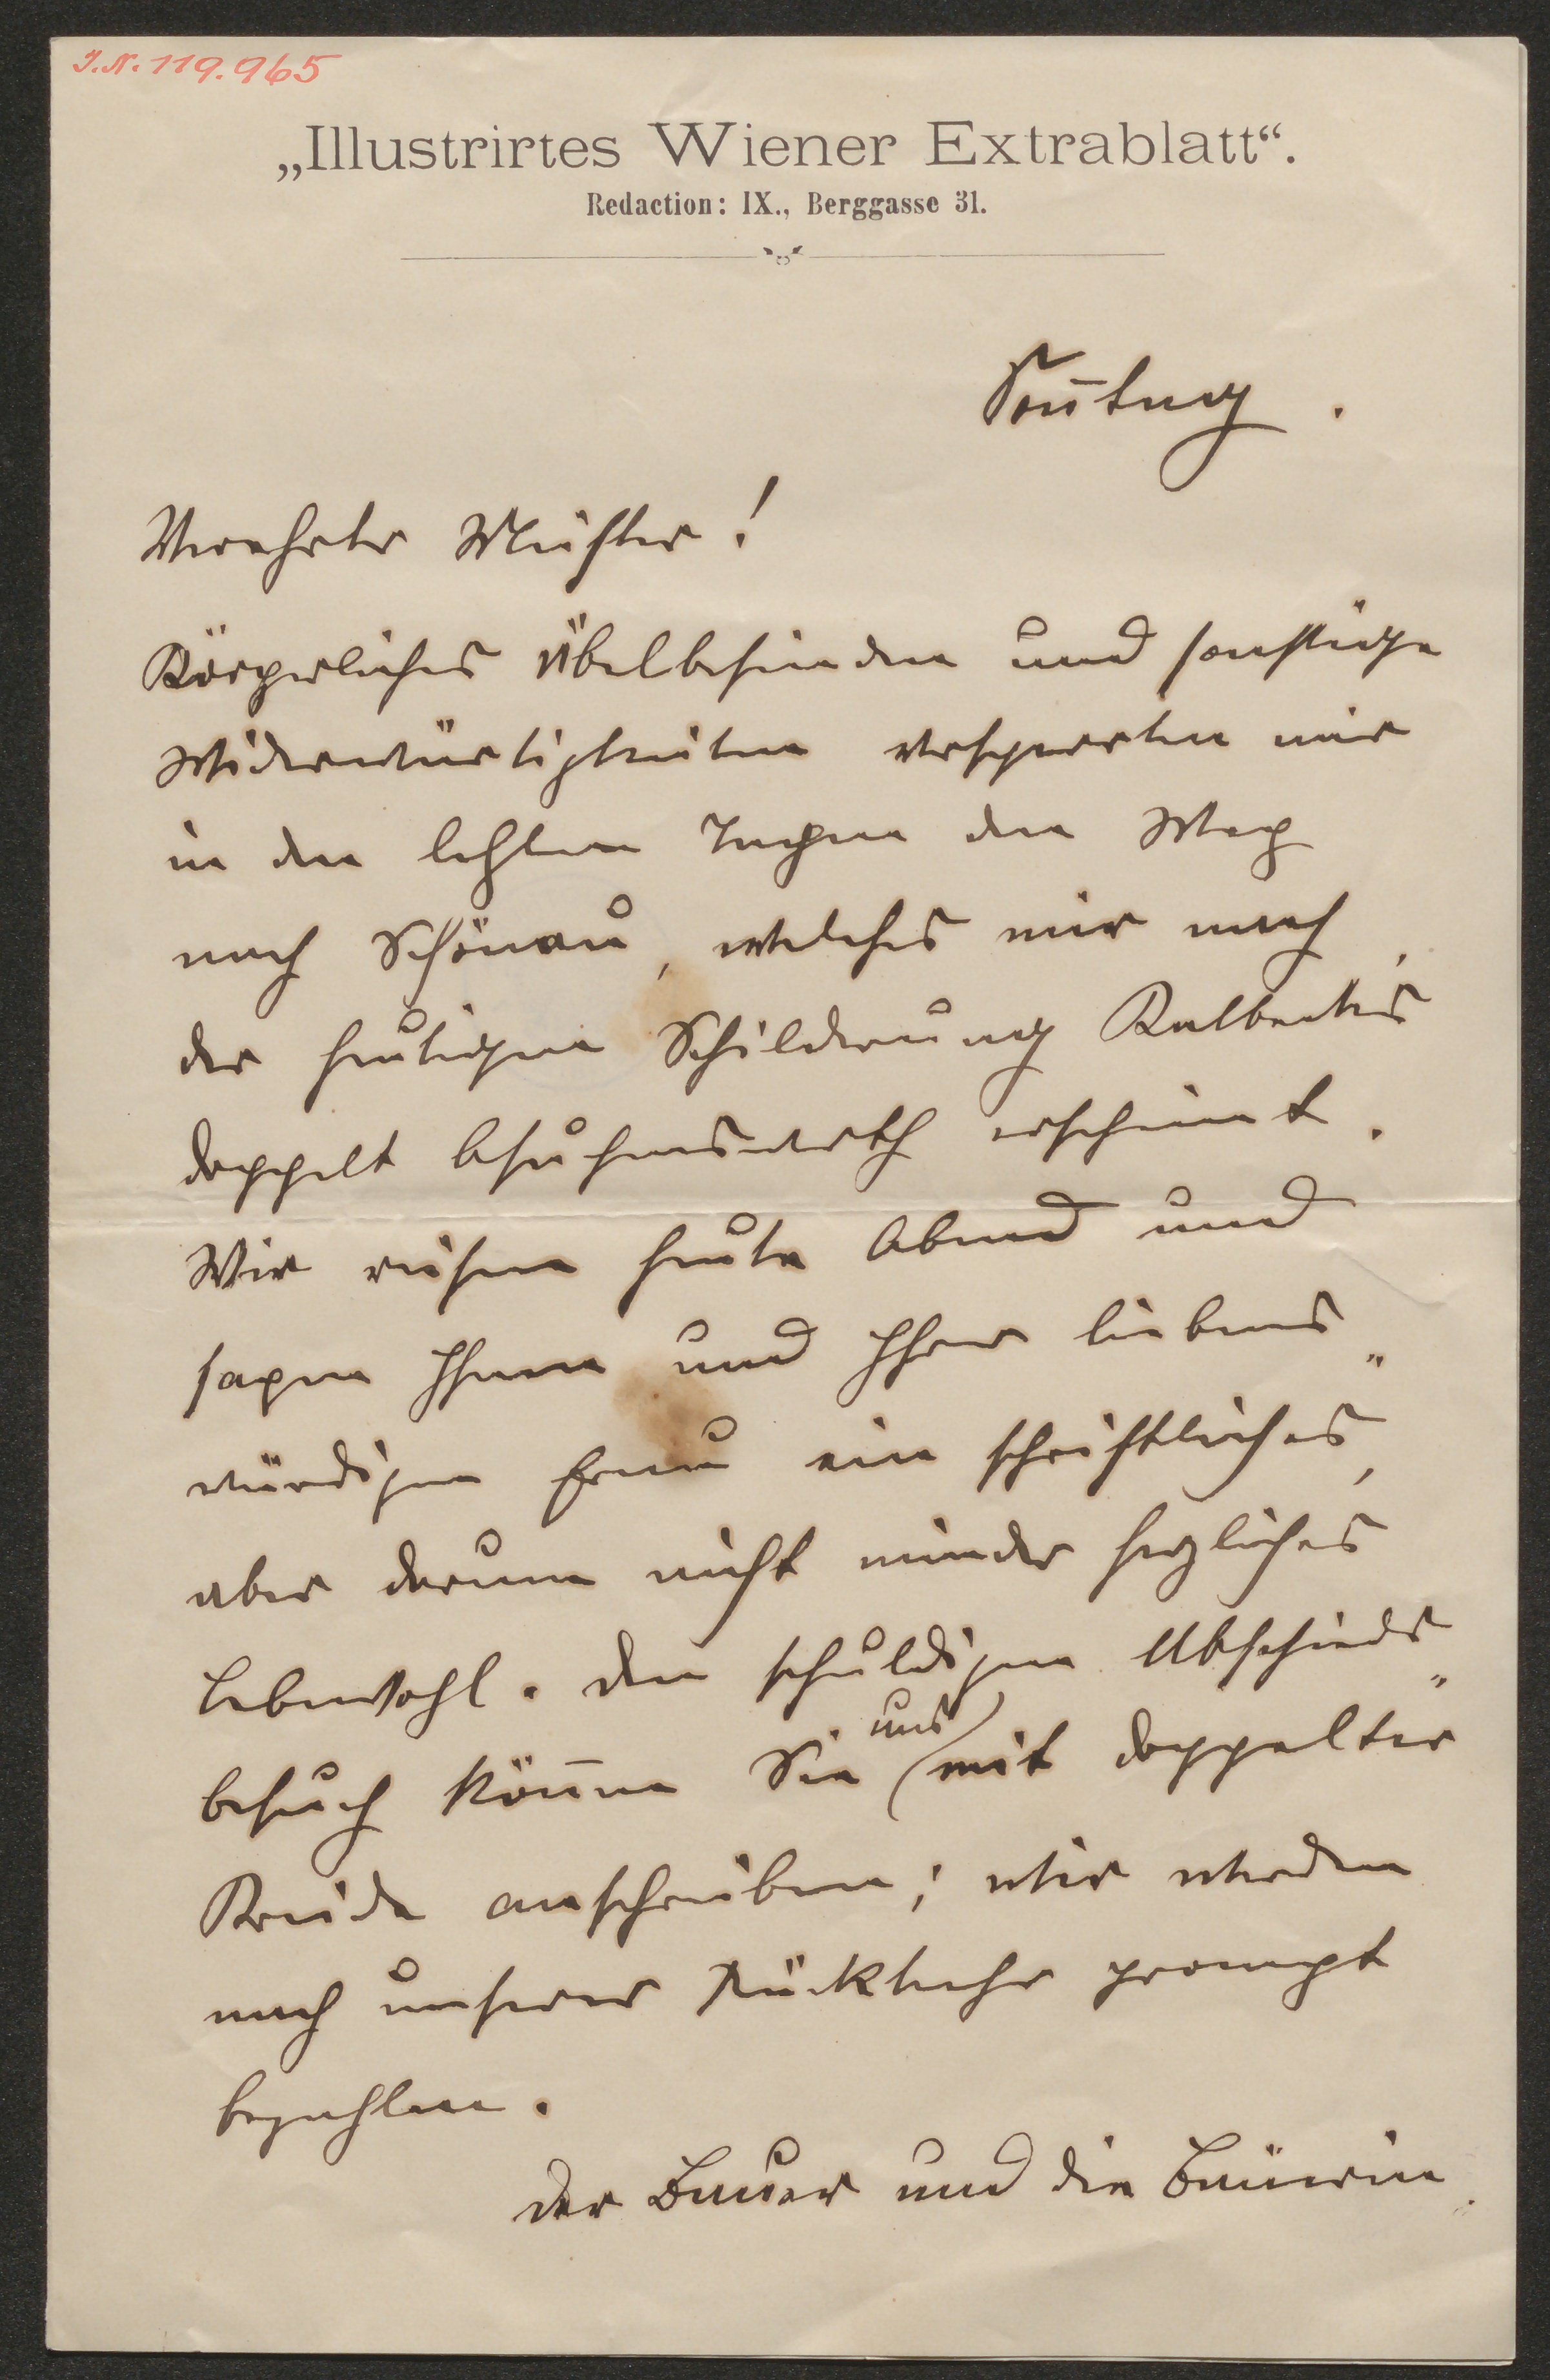 J.N. 119.965
„Illustrirtes Wiener Extrablatt“.
Redaction: IX., Berggasse 31.
Soñtag.
Verehrter Meister!
Körperliches Übelbefinden und sonstige
Widerwärtigkeiten versperrten mir
in den letzten Tagen den Weg
nach Schönau, welches mir nach
der heutigen Schilderung Kalbecks
doppelt besuchenswerth erscheint.
Wir reisen heute Abend und
sagen Ihnen und Ihrer liebens„
würdigen Frau ein schriftliches,
aber darum nicht minder herzliches
Lebewohl. Den schuldigen Abschieds„
besuch köñen Sie uns mit doppelter
Kreide anschreiben; wir werden
nach unserer Rückkehr prompt
bezahlen.
Der Bauer und die Bäuerin.